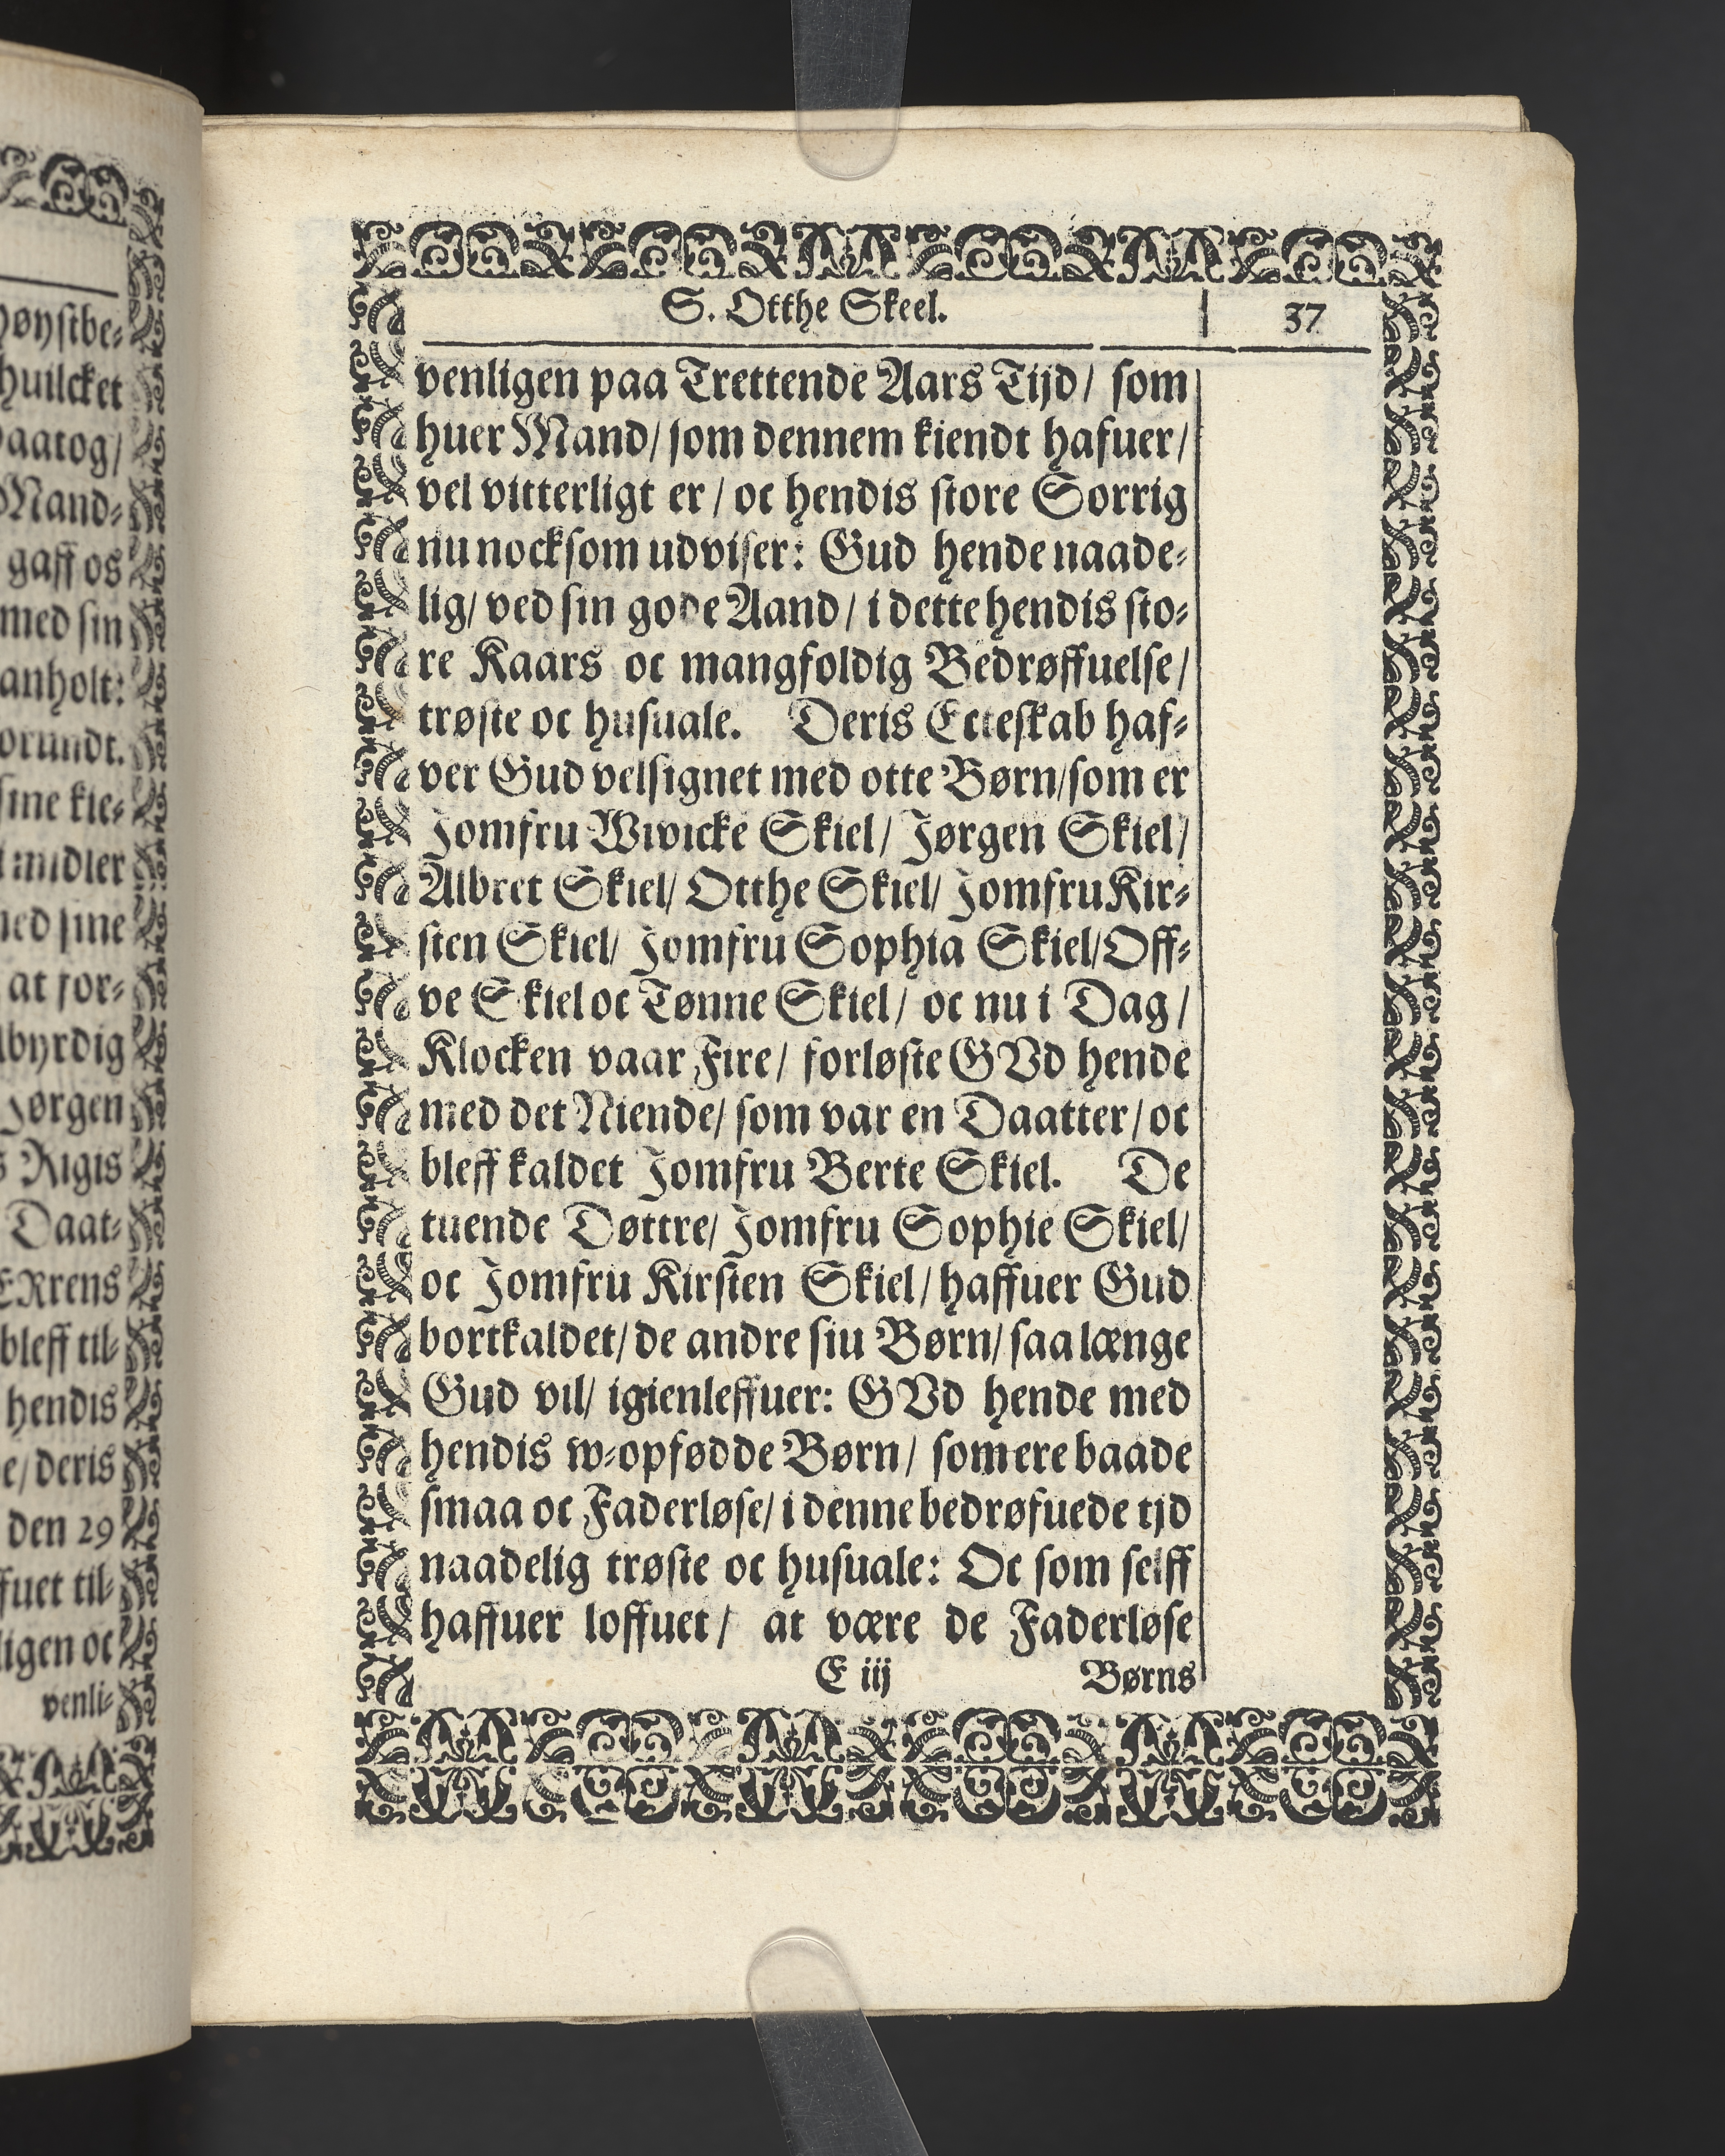 høystbe⸗
huilcket
paatog/
Mand⸗
gaff os
med sin
anholt:
orundt.
sine kie⸗
imidler
med sine
at for⸗
lbyrdig
Jørgen
s Rigis
Daat⸗
ERrens
bleff til⸗
hendis
e/ deris
den 29
ffuet til⸗
ligen oc
venli⸗
S. Otthe Skeel. 37
venligen paa Trettende Aars Tijd/ som
huer Mand/ som dennem kiendt hafuer/
vel vitterligt er/ oc hendis store Sorrig
nu nocksom udviser: Gud hende naade⸗
lig/ ved sin gode Aand/ i dette hendis sto⸗
re Kaars oc mangfoldig Bedrøffuelse/
trøste oc husuale. Deris Ecteskab haf⸗
ver Gud velsignet med otte Børn/ som er
Jomfru Wivicke Skiel/ Jørgen Skiel/
Albret Skiel/ Otthe Skiel/ Jomfru Kir⸗
sten Skiel/ Jomfru Sophia Skiel/ Off⸗
ve Skiel oc Tønne Skiel/ oc nu i Dag/
Klocken vaar Fire/ forløste GVd hende
med det Niende/ som var en Daatter/ oc
bleff kaldet Jomfru Berte Skiel. De
tuende Døttre/ Jomfru Sophie Skiel/
oc Jomfru Kirsten Skiel/ haffuer Gud
bortkaldet/ de andre siu Børn/ saa længe
Gud vil/ igienleffuer: GVd hende med
hendis w⸗opfødde Børn/ som ere baade
smaa oc Faderløse/ i denne bedrøfuede tjd
naadelig trøste oc husuale: Oc som selff
haffuer loffuet/ at være de Faderløse
E iij Børns